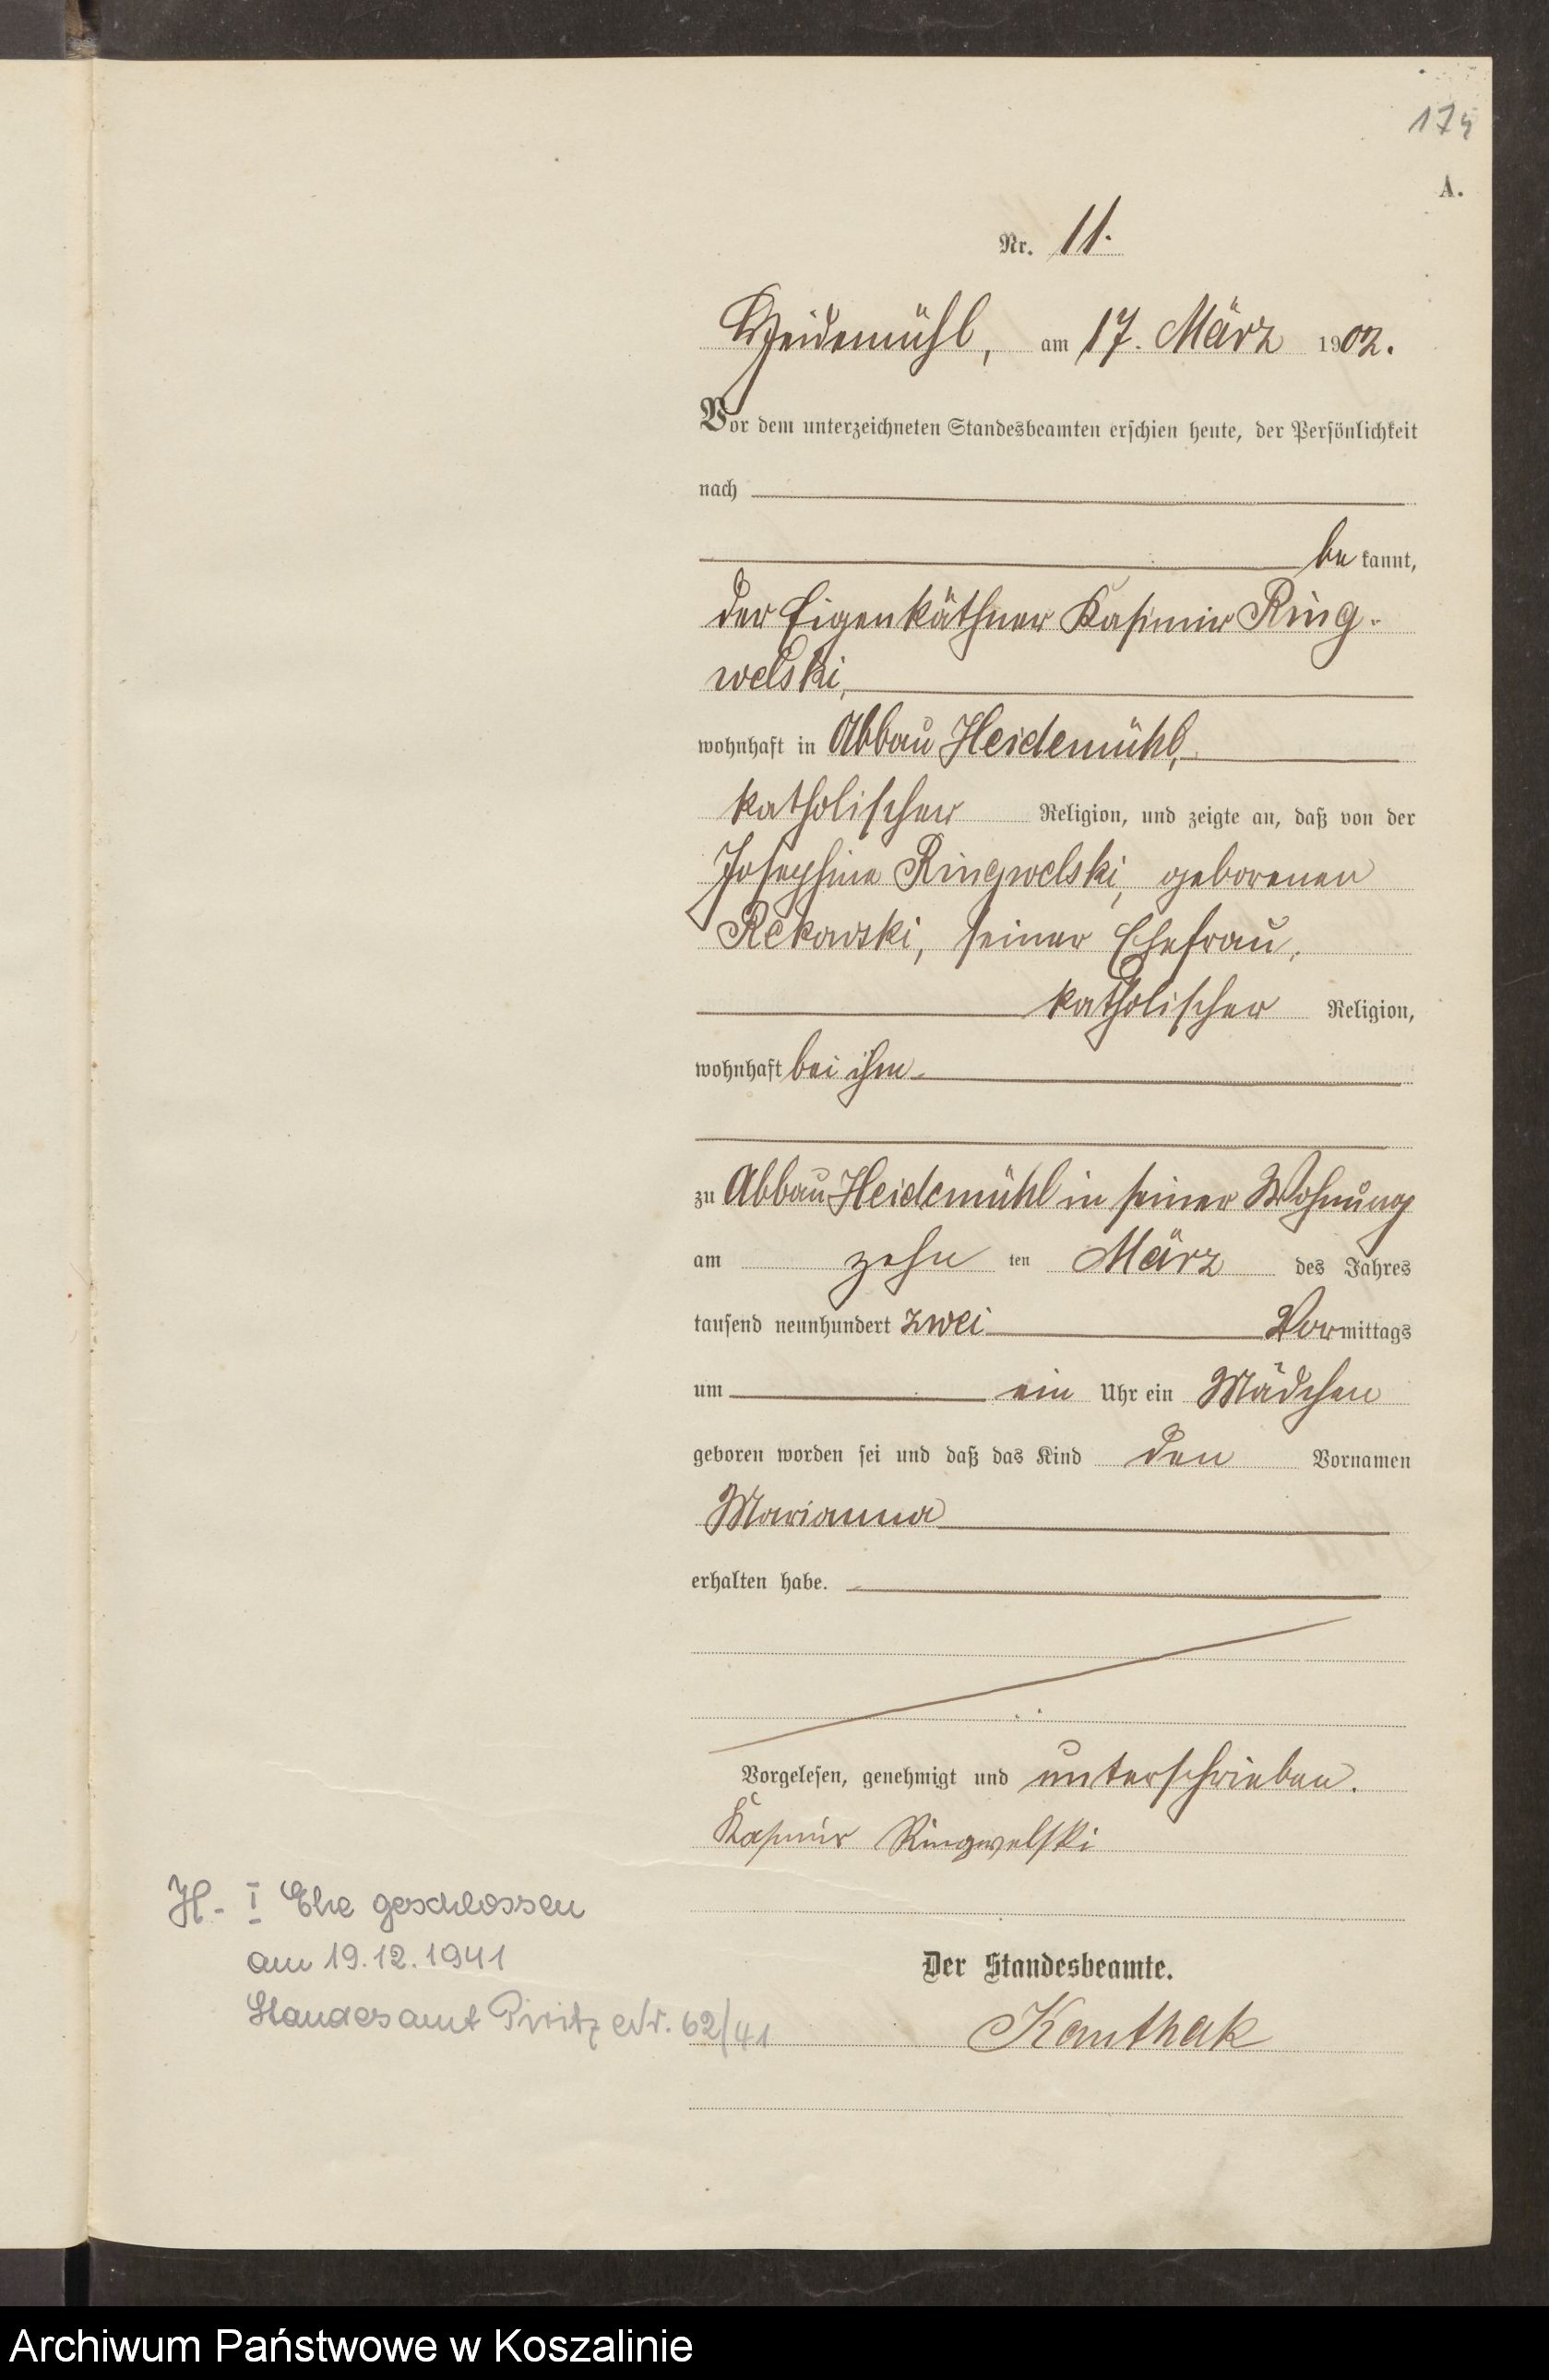 174
A.
Nr. 11.
Heidemühl, am 17. März 1902.
Vor dem unterzeichneten Standesbeamten erschien heute, der Persönlichkeit
nach
be kannt,
der Eigenkäthner Kasimir Ring-
welski,
wohnhaft in Abbau Heidemühl,
katholischer Religion, und zeigte an, daß von der
Josephine Ringwelski, geborenen
Rekowski, seiner Ehefrau,
katholischer Religion,
wohnhaft bei ihm
zu Abbau Heidemühl in seiner Wohnung
am zehn ten März des Jahres
tausend neunhundert zwei Vormittags
um ein Uhr ein Mädchen
geboren worden sei und daß das Kind den Vornamen
Marianna
erhalten habe.
Vorgelesen, genehmigt und unterschrieben.
Kasimir Ringwelski
H. I Ehe geschlossen
am 19.12.1941
Standesamt Nr. 62/41
Der Standesbeamte.
Kanthak
Archiwum Państwowe w Koszalinie